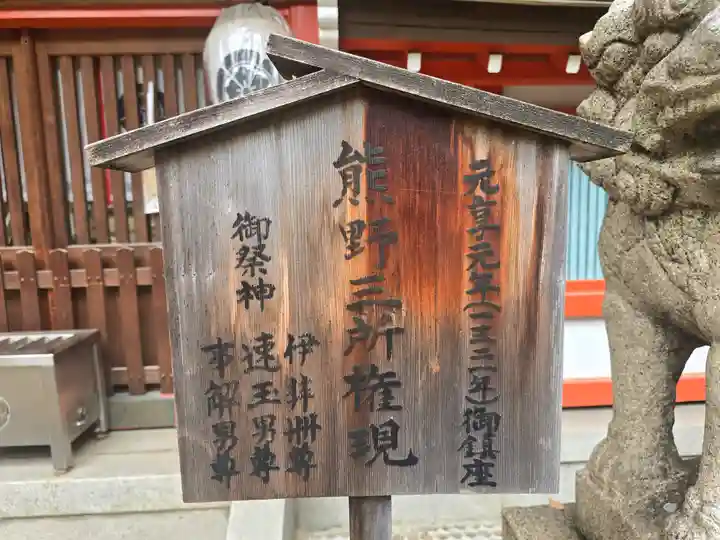 元享元年(一三二一年)御鎮座
熊野三所権現
御祭神
伊弉冊尊
速玉男尊
事解男尊